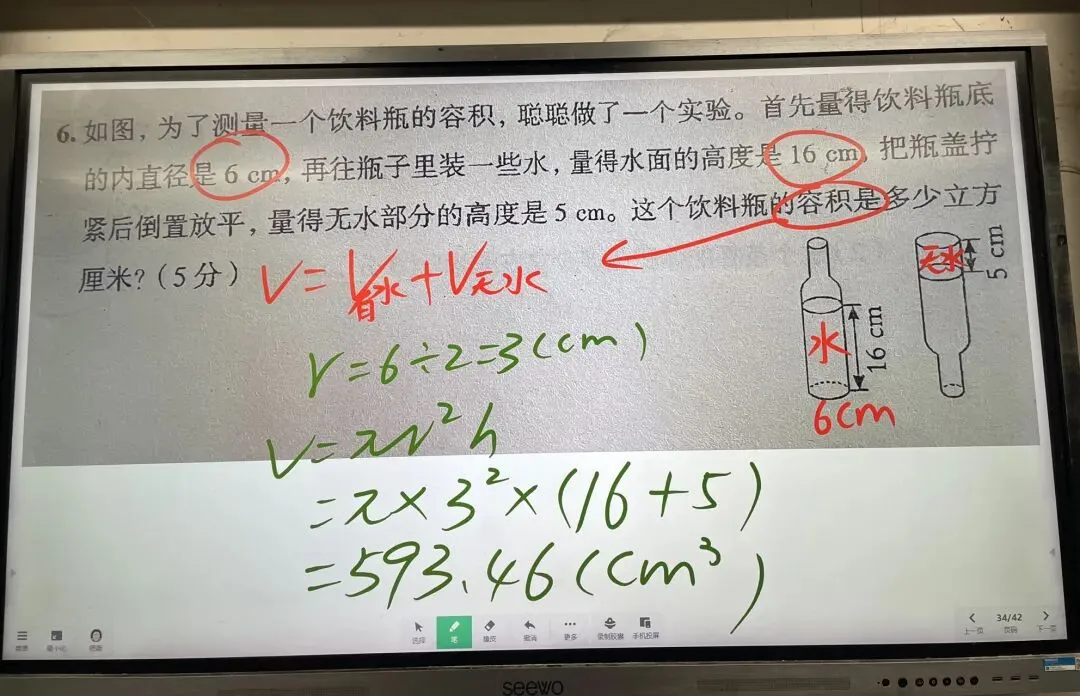 6. 如图，为了测量一个饮料瓶的容积，聪聪做了一个实验。首先量得饮料瓶底
的内直径是 6 cm，再往瓶子里装一些水，量得水面的高度是 16 cm，把瓶盖拧
紧后倒置放平，量得无水部分的高度是 5 cm。这个饮料瓶的容积是多少立方
厘米？（5 分）
V=V有水+V无水
无水
5 cm
水
16 cm
6cm
r=6÷2=3(cm)
V=πr²h
=π×3²×(16+5)
=593.46(cm³)
选择
笔
橡皮
撤消
更多
录制胶囊
手机投屏
上一页
34/42
页码
下一页
seewo